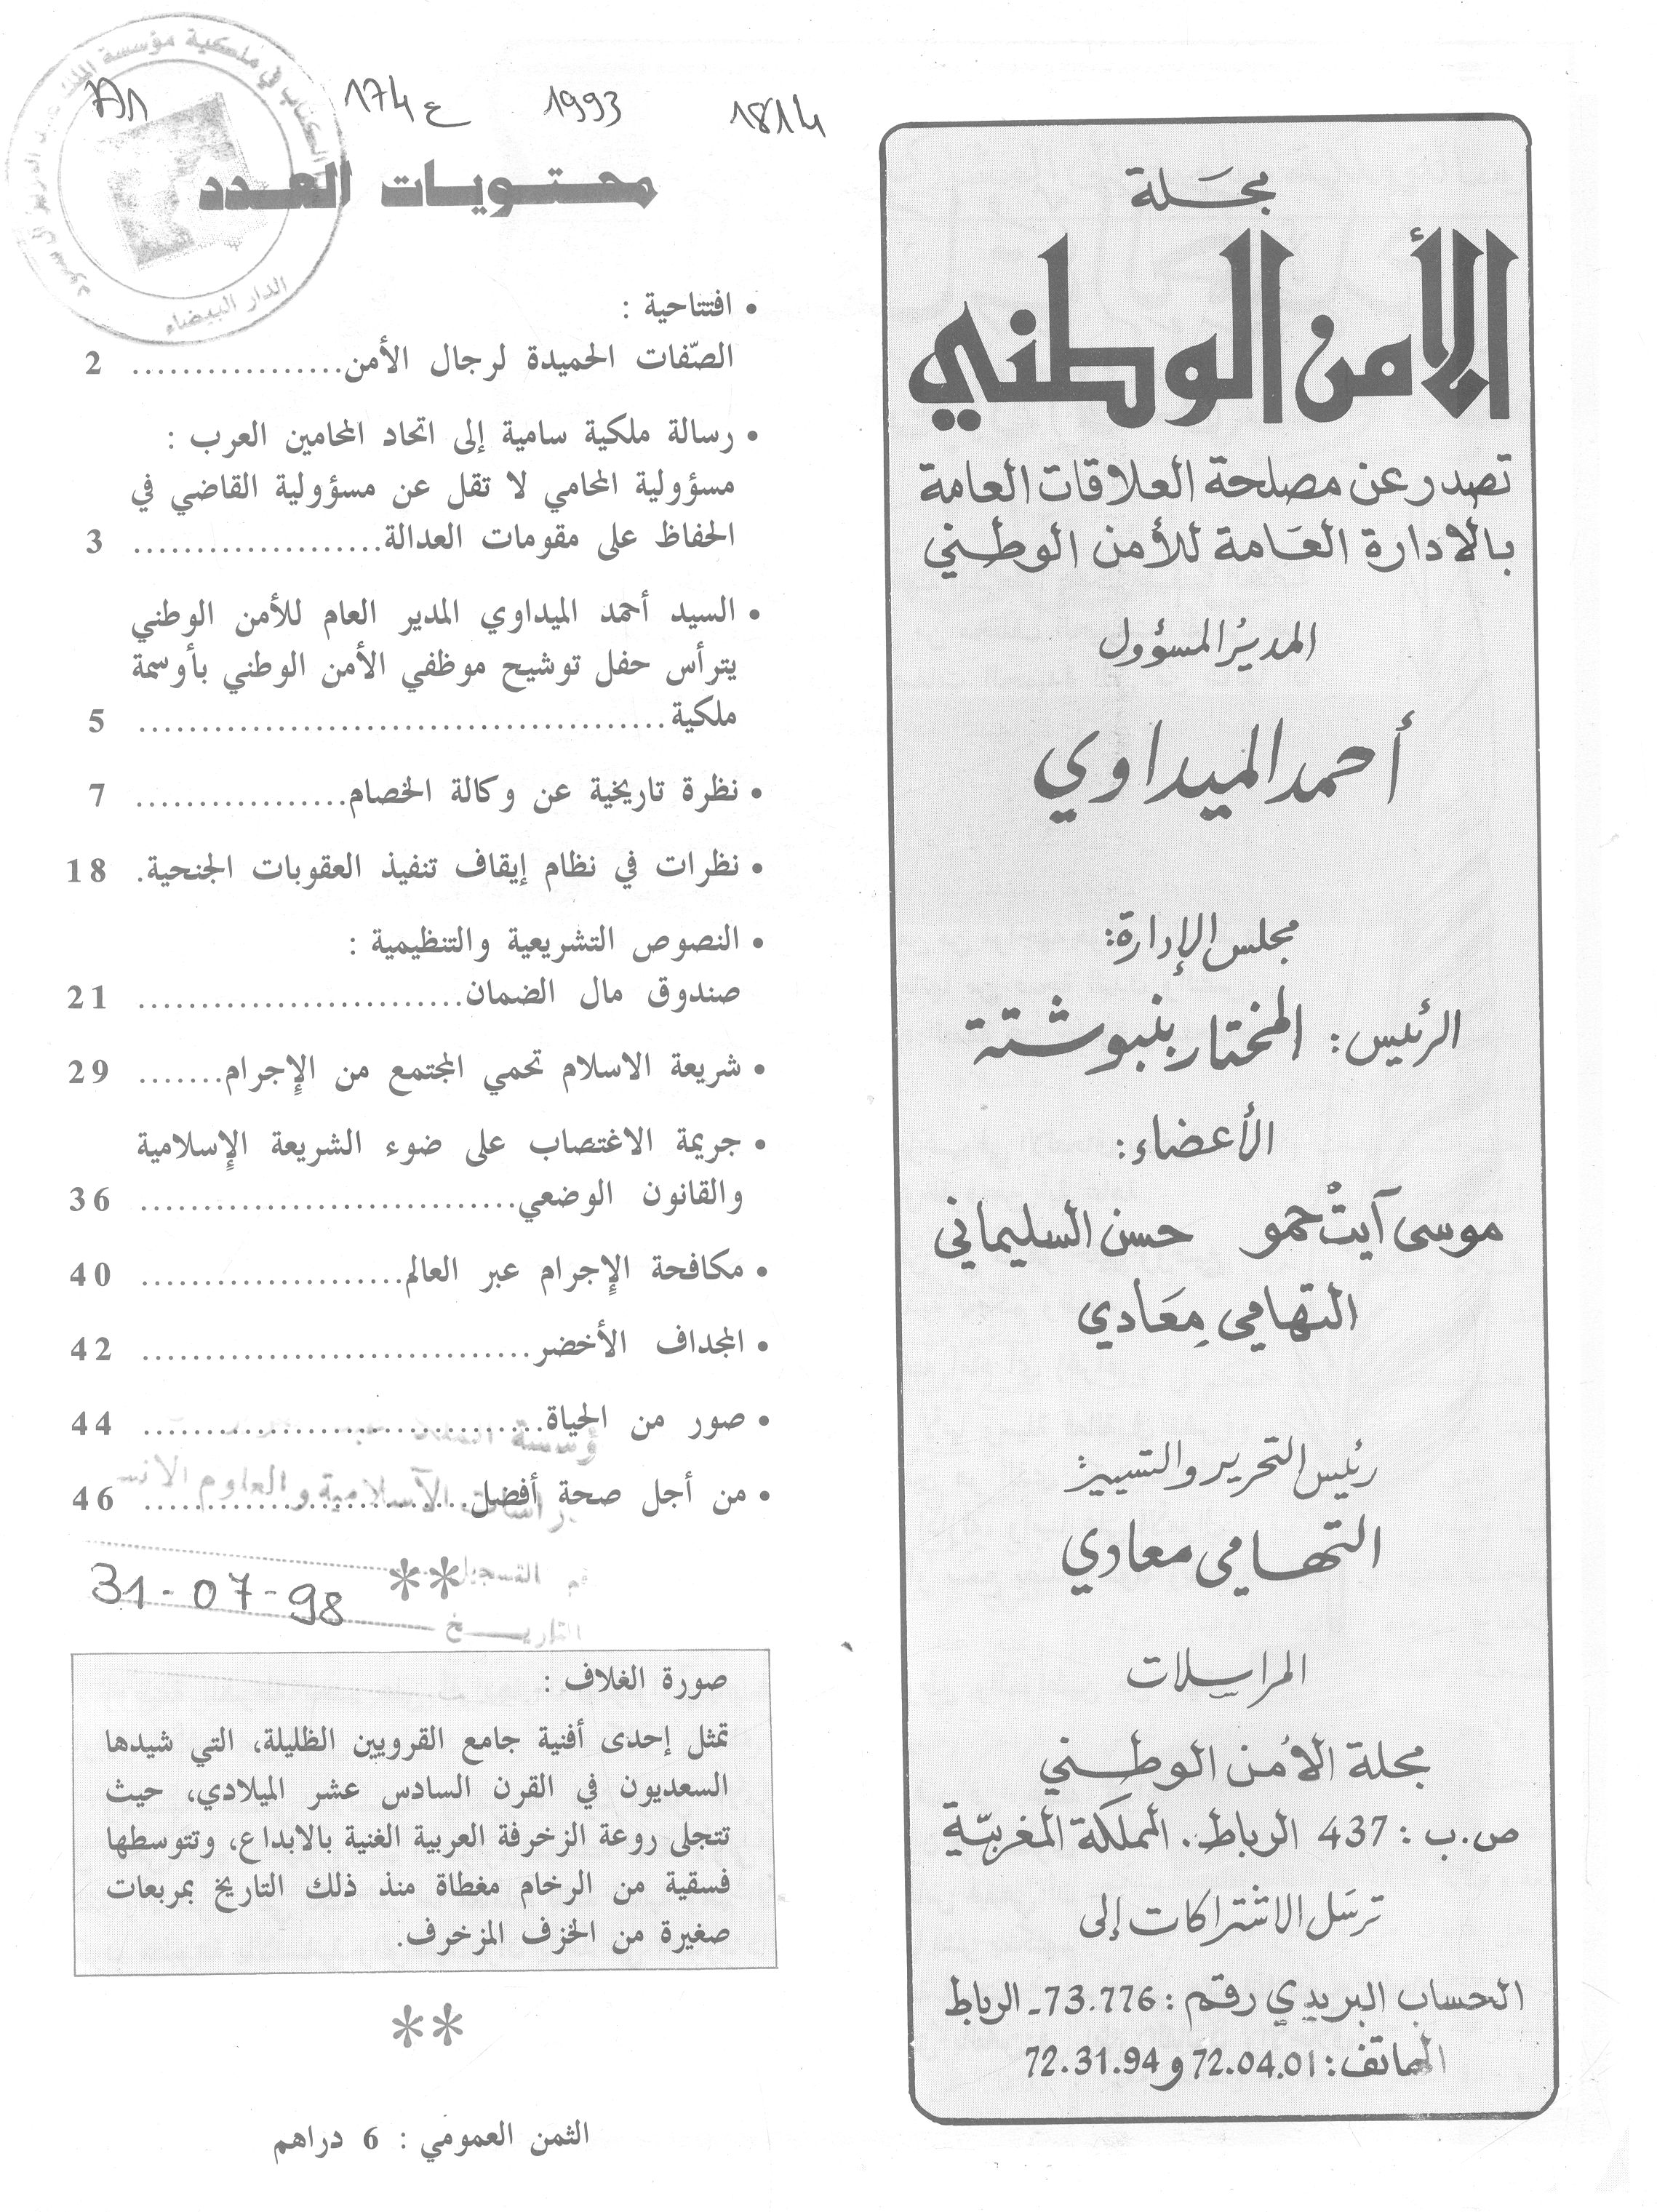 1814
1993
174 ع
مجلة
الأمن الوطني
تصدر عن مصلحة العلاقات العامة
بالادارة العامة للأمن الوطني
المدير المسؤول
أحمد الميداوي
مجلس الإدارة:
الرئيس: المختار بنبوشتة
الأعضاء:
موسى آيت حمو حسن السليماني
التهامي معادي
رئيس التحرير والتسيير
التهامي معادي
المراسلات
مجلة الأمن الوطني
ص.ب : 437 الرباط. المملكة المغربية
ترسل الاشتراكات إلى
الحساب البريدي رقم : 73.776 ـ الرباط
الهاتف : 72.04.01 و 72.31.94
محتويات العدد
• افتتاحية :
الصّفات الحميدة لرجال الأمن................. 2
• رسالة ملكية سامية إلى اتحاد المحامين العرب :
مسؤولية المحامي لا تقل عن مسؤولية القاضي في
الحفاظ على مقومات العدالة.................... 3
• السيد أحمد الميداوي المدير العام للأمن الوطني
يترأس حفل توشيح موظفي الأمن الوطني بأوسمة
ملكية.......................................... 5
• نظرة تاريخية عن وكالة الخصام................. 7
• نظرات في نظام إيقاف تنفيذ العقوبات الجنحية. 18
• النصوص التشريعية والتنظيمية :
صندوق مال الضمان.......................... 21
• شريعة الاسلام تحمي المجتمع من الإجرام....... 29
• جريمة الاغتصاب على ضوء الشريعة الإسلامية
والقانون الوضعي.............................. 36
• مكافحة الإجرام عبر العالم..................... 40
• المجداف الأخضر............................... 42
• صور من الحياة................................ 44
• من أجل صحة أفضل.......................... 46
**
31-07-98
صورة الغلاف :
تمثل إحدى أفنية جامع القرويين الظليلة، التي شيدها
السعديون في القرن السادس عشر الميلادي، حيث
تتجلى روعة الزخرفة العربية الغنية بالابداع، وتتوسطها
فسقية من الرخام مغطاة منذ ذلك التاريخ بمربعات
صغيرة من الخزف المزخرف.
**
الثمن العمومي : 6 دراهم
الدار البيضاء